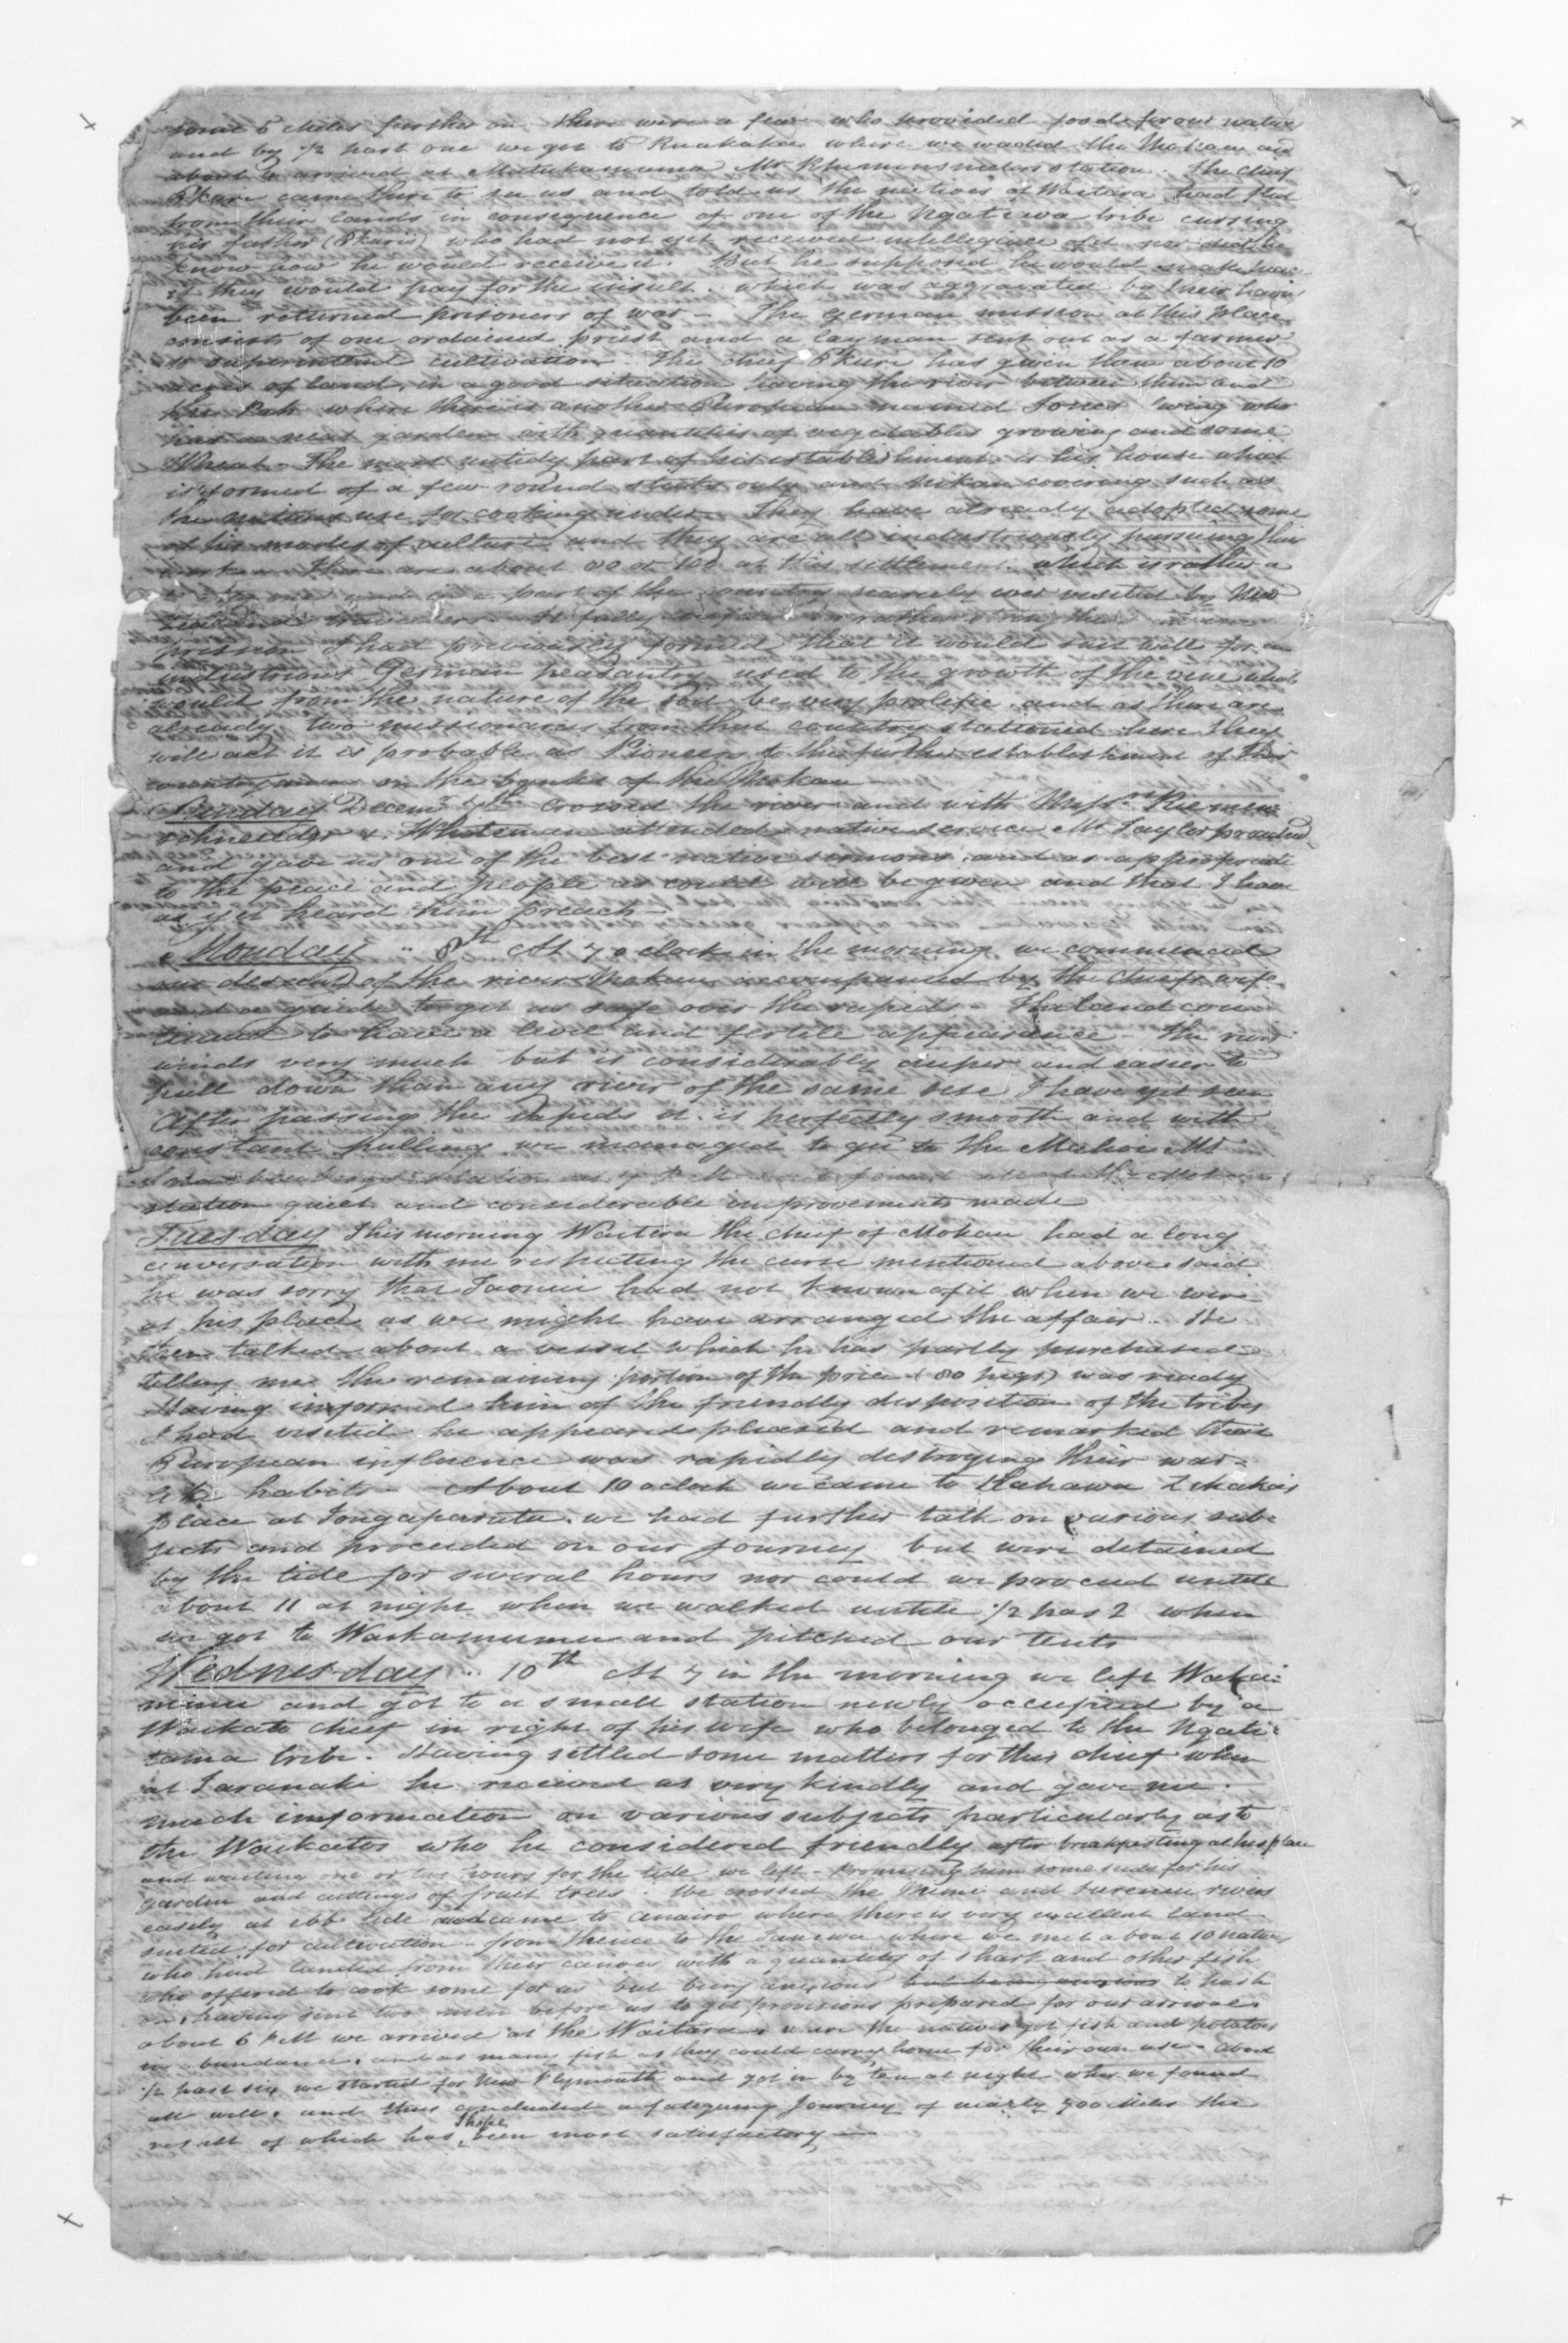 some 6 miles further on there were a few who provided food for our natives
and by 1/2 past one we got to Ruakaka where we waded the Mokau and
about 2 arrived at Matukamuma Mr Riemenschneiders station. The chief
came there to see us and told us the natives of Waitara had fled
from their lands in consequence of one of the Ngatiawa tribe cursing
his father who had not yet received intellegiance of it nor did he
know how he would receive it. But he supposed he would make
if they would pay for the insult. which was aggravated by their having
been returned prisoners of war - The german mission at this place
consists of one ordained priest and a layman sent out as a farmer
to superintend cultivation. The chief has given them about 10
acres of land, in a good situation having the river between them and
the Pah where there is another European named Jones living who
has a neat garden with quantities of vegetables growing and some
Wheat - The most untidy part of his establishment is his house which
is formed of a few round sticks only and nikau covering such as
the natives use for cooking under. They have already adopted some
of his modes of culture and they are all industriously pursuing their
There are about 80 or 100 at this settlement which is rather a
and in a part of the country scarcely ever visited by New
Zealand travellers. It fully
pression I had previously formed that it would suit well for an
industrious German peasantry used to the growth of the vine which
would from the nature of the soil be very prolific and as there are
already two missionaries from that country stationed here they
will act it is probable as Pioneers to the further establishment of their
countrymen on the banks of the Mokau
Sunday Decemr 7th Crossed the river and with Messrs Riemen=
schneider & Whiteman attended native service Mr Taylor preached
and gave us one of the best native sermons, and as appropriate
to the place and people as could well be given and that I have
as yet heard him preach -
Monday " 8th At 7 o clock in the morning we commenced
our descent of the river Mokau accompanied by the chiefs wife
and a guide to get us safe over the rapids - The land con
tinued to have a level and fertile appearance - the river
winds very much but is considerably deeper and easier to
pull down than any river of the same size I have yet seen
After passing the rapids it is perfectly smooth and with
constant pulling we managed to get to the Mr
station at 7 P.M. and found all at the Mokau
station quiet and considerable improvements made
Tuesday This morning Waitera the chief of Mokau had a long
conversation with me respecting the curse mentioned above said
he was sorry that Taonui had not known of it when we were
at his place as we might have arranged the affair. He
then talked about a vessel which he has partly purchased
telling me the remaining portion of the price (80 pigs) was ready
Having informed him of the friendly disposition of the tribes
I had visited he appeared pleased and remarked that
European influence was rapidly destroying their war=
like habits - About 10 oclock we came to
place at Tongaparutu. we had further talk on various sub=
jects and proceeded on our journey but were detained
by the tide for several hours nor could we proceed untill
about 11 at night when we walked untill 1/2 pas 2 when
we got to and pitched our tents
Wednesday " 10th At 7 in the morning we left
and got to a small station newly occupied by a
Waikato chief in right of his wife who belonged to the Ngati=
tama tribe. Having settled some matters for this chief when
at Taranaki he received us very kindly and gave me
much information on various subjects particularly as to
the Waikatos who he considered friendly after breakfasting at his place
and waiting one or two hours for the tide we left - Promising him some seeds for his
garden and cuttings of fruit trees. We crossed the Mimi and Urenui rivers
easily at ebb tide and came to Onairo where there is very excellent land
suited for cultivation - from thence to the where we met about 10 natives
who had landed from their canoes with a quantity of shark and other fish
who offered to cook some for us but being anxious but being anxious to push
on, having sent two men before us to get provisions prepared for our arrival
about 6 P.M we arrived at the Waitara where the natives got fish and potatoes
in abundance, and as many fish as they could carry home for their own use. About
1/2 past six we started for New Plymouth and got in by ten at night when we found
all well, and thus concluded a fatiguing Journey of nearly 500 Miles the
result of which has I hope been most satisfactory -